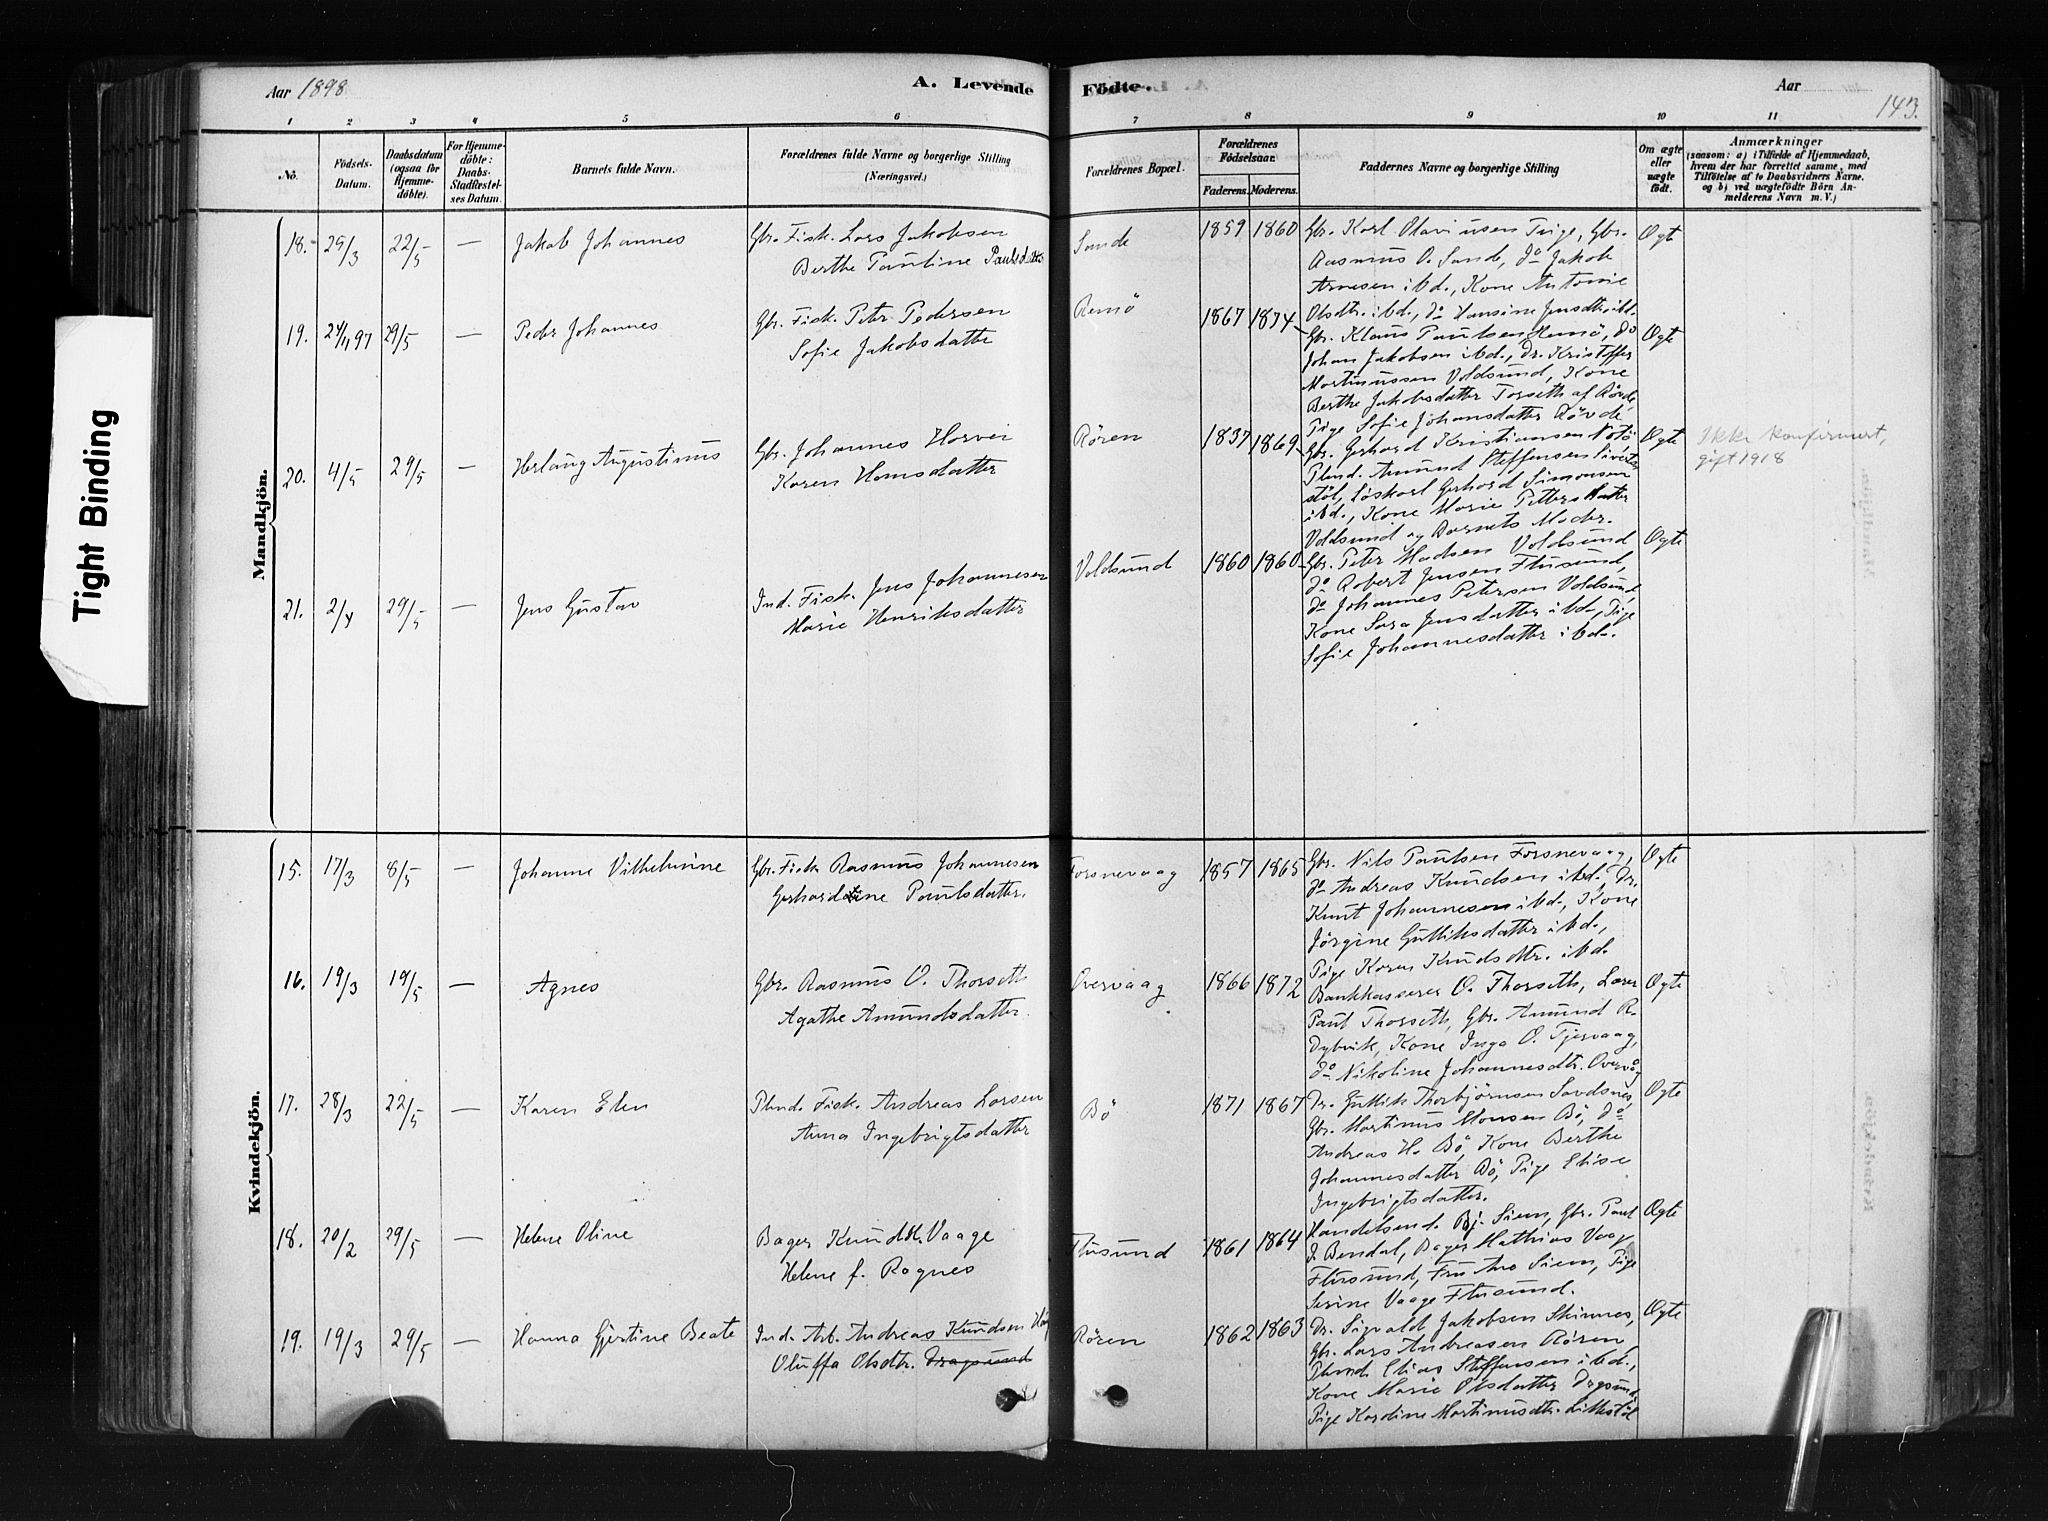 Tight Binding
Aar 1898
A. Levende Födte.
Aar
143.
1 2 3 4 5 6 7 8 9 10 11
No.
Födsels-Datum.
Daabsdatum (ogsaa for Hjemme-döbte).
For Hjemme-döbte: Daabs-Stadfæstelses Datum.
Barnets fulde Navn.
Forældrenes fulde Navne og borgerlige Stilling (Næringsvei.)
Forældrenes Bopæl.
Forældrenes Födselsaar.
Faderens. Moderens.
Faddernes Navne og borgerlige Stilling
Om ægte eller uægte født.
Anmærkninger
(saasom: a) i Tilfælde af Hjemmedaab, hvem der har forrettet samme, med Tilföielse af to Daabsvidners Navne, og b) ved uægtefödte Börn Anmelderens Navn m. V.)
Mandkjön.
18. 29/3 22/5 — Jakob Johannes
Gbr. Fisk. Lars Jakobsen
Berthe Pauline Paulsdatter
Sande 1859 1860
Gbr. Karl Olariusen Tige, Gbr.
Rasmus O. Sand, do Jakob
Arnesen ibd., Kone Antonie
Olsdtr. ibd., do Hansine Jensdtr. ibd.
Ægte
19. 24/11 97 29/5 — Peder Johannes
Gbr. Fisk. Peter Pedersen
Sofie Jakobsdatter
Remö 1867 1874
Gbr. Klaus Paulsen Remö, do
Johan Jakobsen ibd., Dr. Kristoffer
Martinussen Voldsund, Kone
Berthe Jakobsdatter Torseth af Rövde,
Pige Sofie Johansdatter Rövde
Ægte
20. 4/5 29/5 — Herlaug Augustinus
Gbr. Johannes Horvei
Karen Hansdatter
Rören 1837 1869
Gbr. Gerhard Kristiansen Notö
Plmd. Amund Steffensen Sivertstöl, Löskarl Gerhard Simonsen
ibd., Kone Marie Pettersdatter
Voldsund og Barnets Moder.
Ægte
Ikke konfirmert,
gift 1918
21. 2/4 29/5 — Jens Gustav
Ind. Fisk. Jens Johannesen
Marie Henriksdatter
Voldsund 1860 1860
Gbr. Peter Madsen Voldsund
do Robert Jensen Flusund,
do Johannes Petersen Voldsund
Kone Sara Jensdatter ibd., Pige
Sofie Johannesdatter ibd.
Ægte
Kvindekjön.
15. 17/3 8/5 — Johanne Vilhelmine
Gbr. Fisk. Rasmus Johannesen
Gerhardine Paulsdatter.
Forsnevaag 1857 1865
Gbr. Nils Paulsen Forsnevaag,
do Andreas Knudsen ibd., Dr.
Knut Johannesen ibd., Kone
Jörgine Guttiksdatter ibd.,
Pige Karen Knudsdtr. ibd.
Ægte
16. 19/3 19/5 — Agnes
Gbr. Rasmus O. Thorseth
Agathe Amundsdatter.
Overvaag 1866 1872
Bankkasserer O. Thorseth, Lærer
Paul Thorseth, Gbr. Amund R.
Dybvik, Kone Inga O. Tjervaag,
do Nikoline Johannesdtr. Overvåg
Ægte
17. 28/3 22/5 — Karen Elen
Plmd. Fisk. Andreas Larsen
Anna Ingebrigtsdatter
Bö 1871 1867
Dr. Guttik Thorbjörnsen Sandsnes,
Gbr. Martinus Monsen Bö, do
Andreas H. Bö, Kone Berthe
Johannesdatter Bö, Pige Elise
Ingebrigtsdatter.
Ægte
18. 20/2 29/5 — Helene Oline
Bager Knud K. Vaage
Helene f. Rognes
Flusund 1861 1864
Handelsend. Bj. Siem, Gbr. Paul
J. Bendal, Bager Mathias Vaag
Flusund, Fru Ane Siem, Pige
Serine Vaage Flusund.
Ægte
19. 19/3 29/5 — Hanna Gjertine Beate
Ind. Arb. Andreas Knudsen
Oluffa Olsdtr. Dragsund
Rören 1862 1863
Dr. Sigvald Jakobsen Skinnes,
Gbr. Lars Andreassen Rören,
Plmd. Elias Steffensen ibd.,
Kone Marie Olsdatter Dragsund,
Pige Karoline Martinusdtr. Littlestöl
Ægte